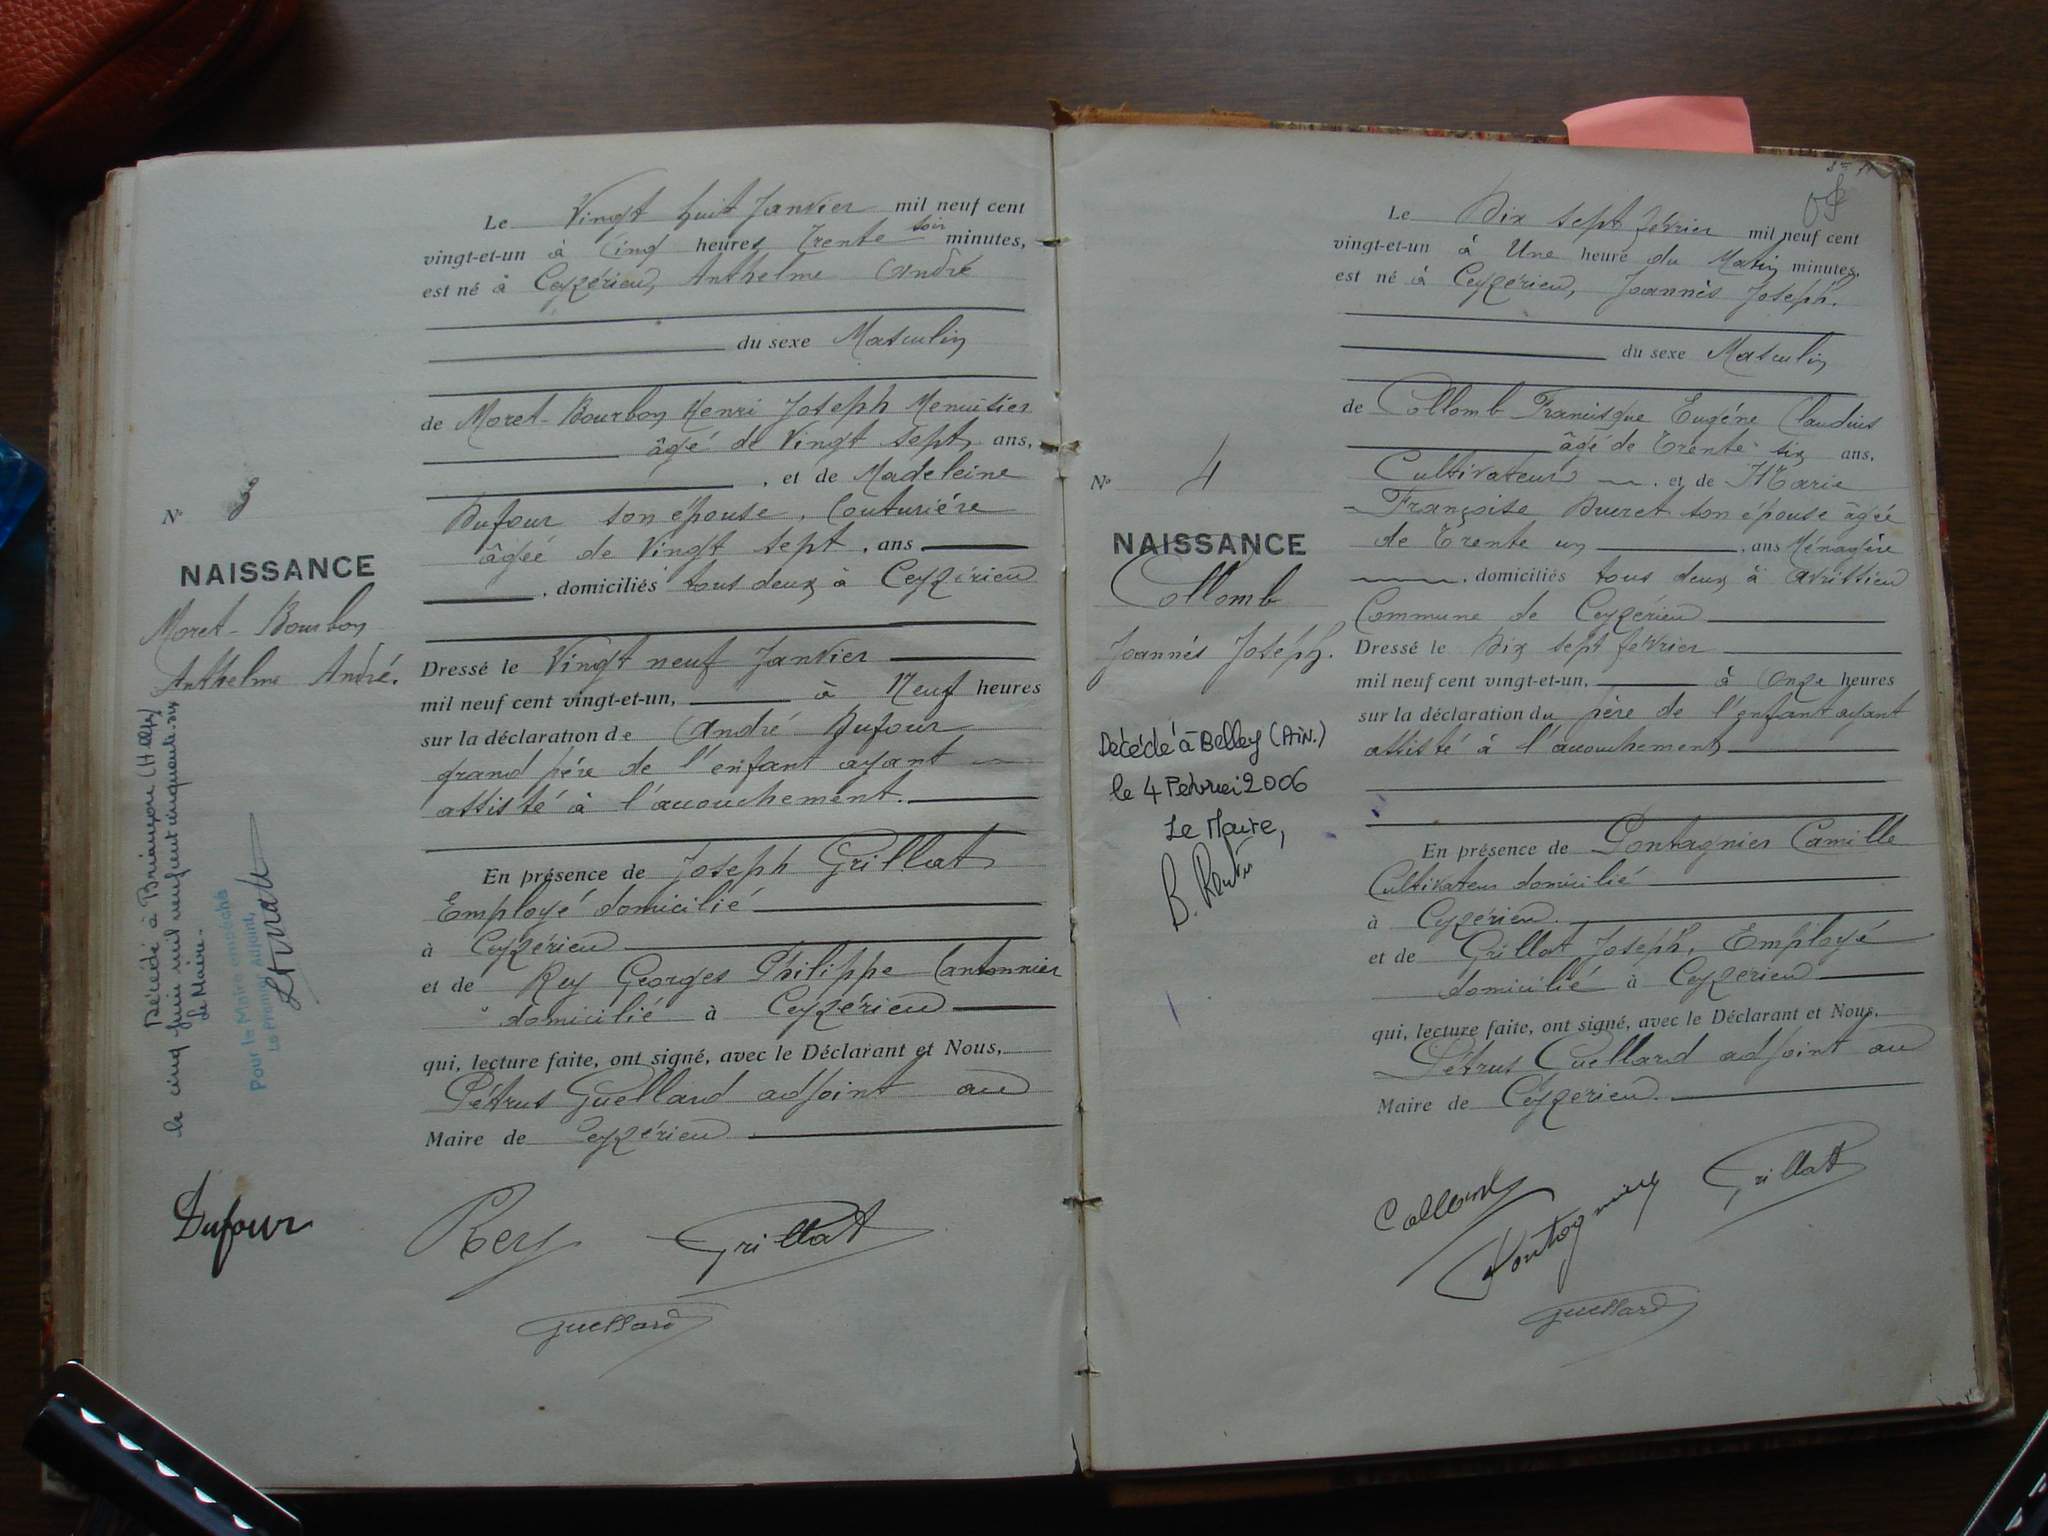 Le Vingt huit Janvier mil neuf cent
vingt-et-un à Cinq heures Trente soir minutes,
est né à Ceyzérieu, Anthelme André
du sexe Masculin
de Moret-Bourbon Henri Joseph Menuisier
âgé de Vingt sept ans,
, et de Madeleine
Dufour son épouse, Couturière
âgée de Vingt sept, ans
, domiciliés tous deux à Ceyzérieu
Dressé le Vingt neuf Janvier
mil neuf cent vingt-et-un, à Neuf heures
sur la déclaration de André Dufour
grand père de l'enfant ayant
assisté à l'accouchement.
En présence de Joseph Grillat
Employé domicilié
à Ceyzérieu
et de Rey Georges Philippe Cantonnier
domicilié à Ceyzérieu
qui, lecture faite, ont signé, avec le Déclarant et Nous,
Pétrus Guellard adjoint au
Maire de Ceyzérieu
N° 3
NAISSANCE
Moret-Bourbon
Anthelme André.
Décédé à Briançon (H. Alpes)
le cinq juin mil neuf cent cinquante six
Le Maire.
Pour le Maire empêché
Le Premier Adjoint,
Dufour
Rey
Grillat
Guellard
Le Dix sept Février mil neuf cent
vingt-et-un à Une heure du Matin minutes,
est né à Ceyzérieu, Joannès Joseph.
du sexe Masculin
de Collomb Francisque Eugène Claudius
âgé de Trente six ans,
Cultivateur, et de Marie
Françoise Ducret son épouse âgée
de Trente un, ans Ménagère
, domiciliés tous deux à Avrissieu
Commune de Ceyzérieu
Dressé le Dix sept Février
mil neuf cent vingt-et-un, à Onze heures
sur la déclaration du père de l'enfant ayant
assisté à l'accouchement
En présence de Pontagnier Camille
Cultivateur domicilié
à Ceyzérieu
et de Grillat Joseph, Employé
domicilié à Ceyzérieu
qui, lecture faite, ont signé, avec le Déclarant et Nous,
Pétrus Guellard adjoint au
Maire de Ceyzérieu.
N° 4
NAISSANCE
Collomb
Joannès Joseph.
Décédé à Belley (AIN.)
le 4 Février 2006
Le Maire,
Collomb
Pontagnier
Grillat
Guellard